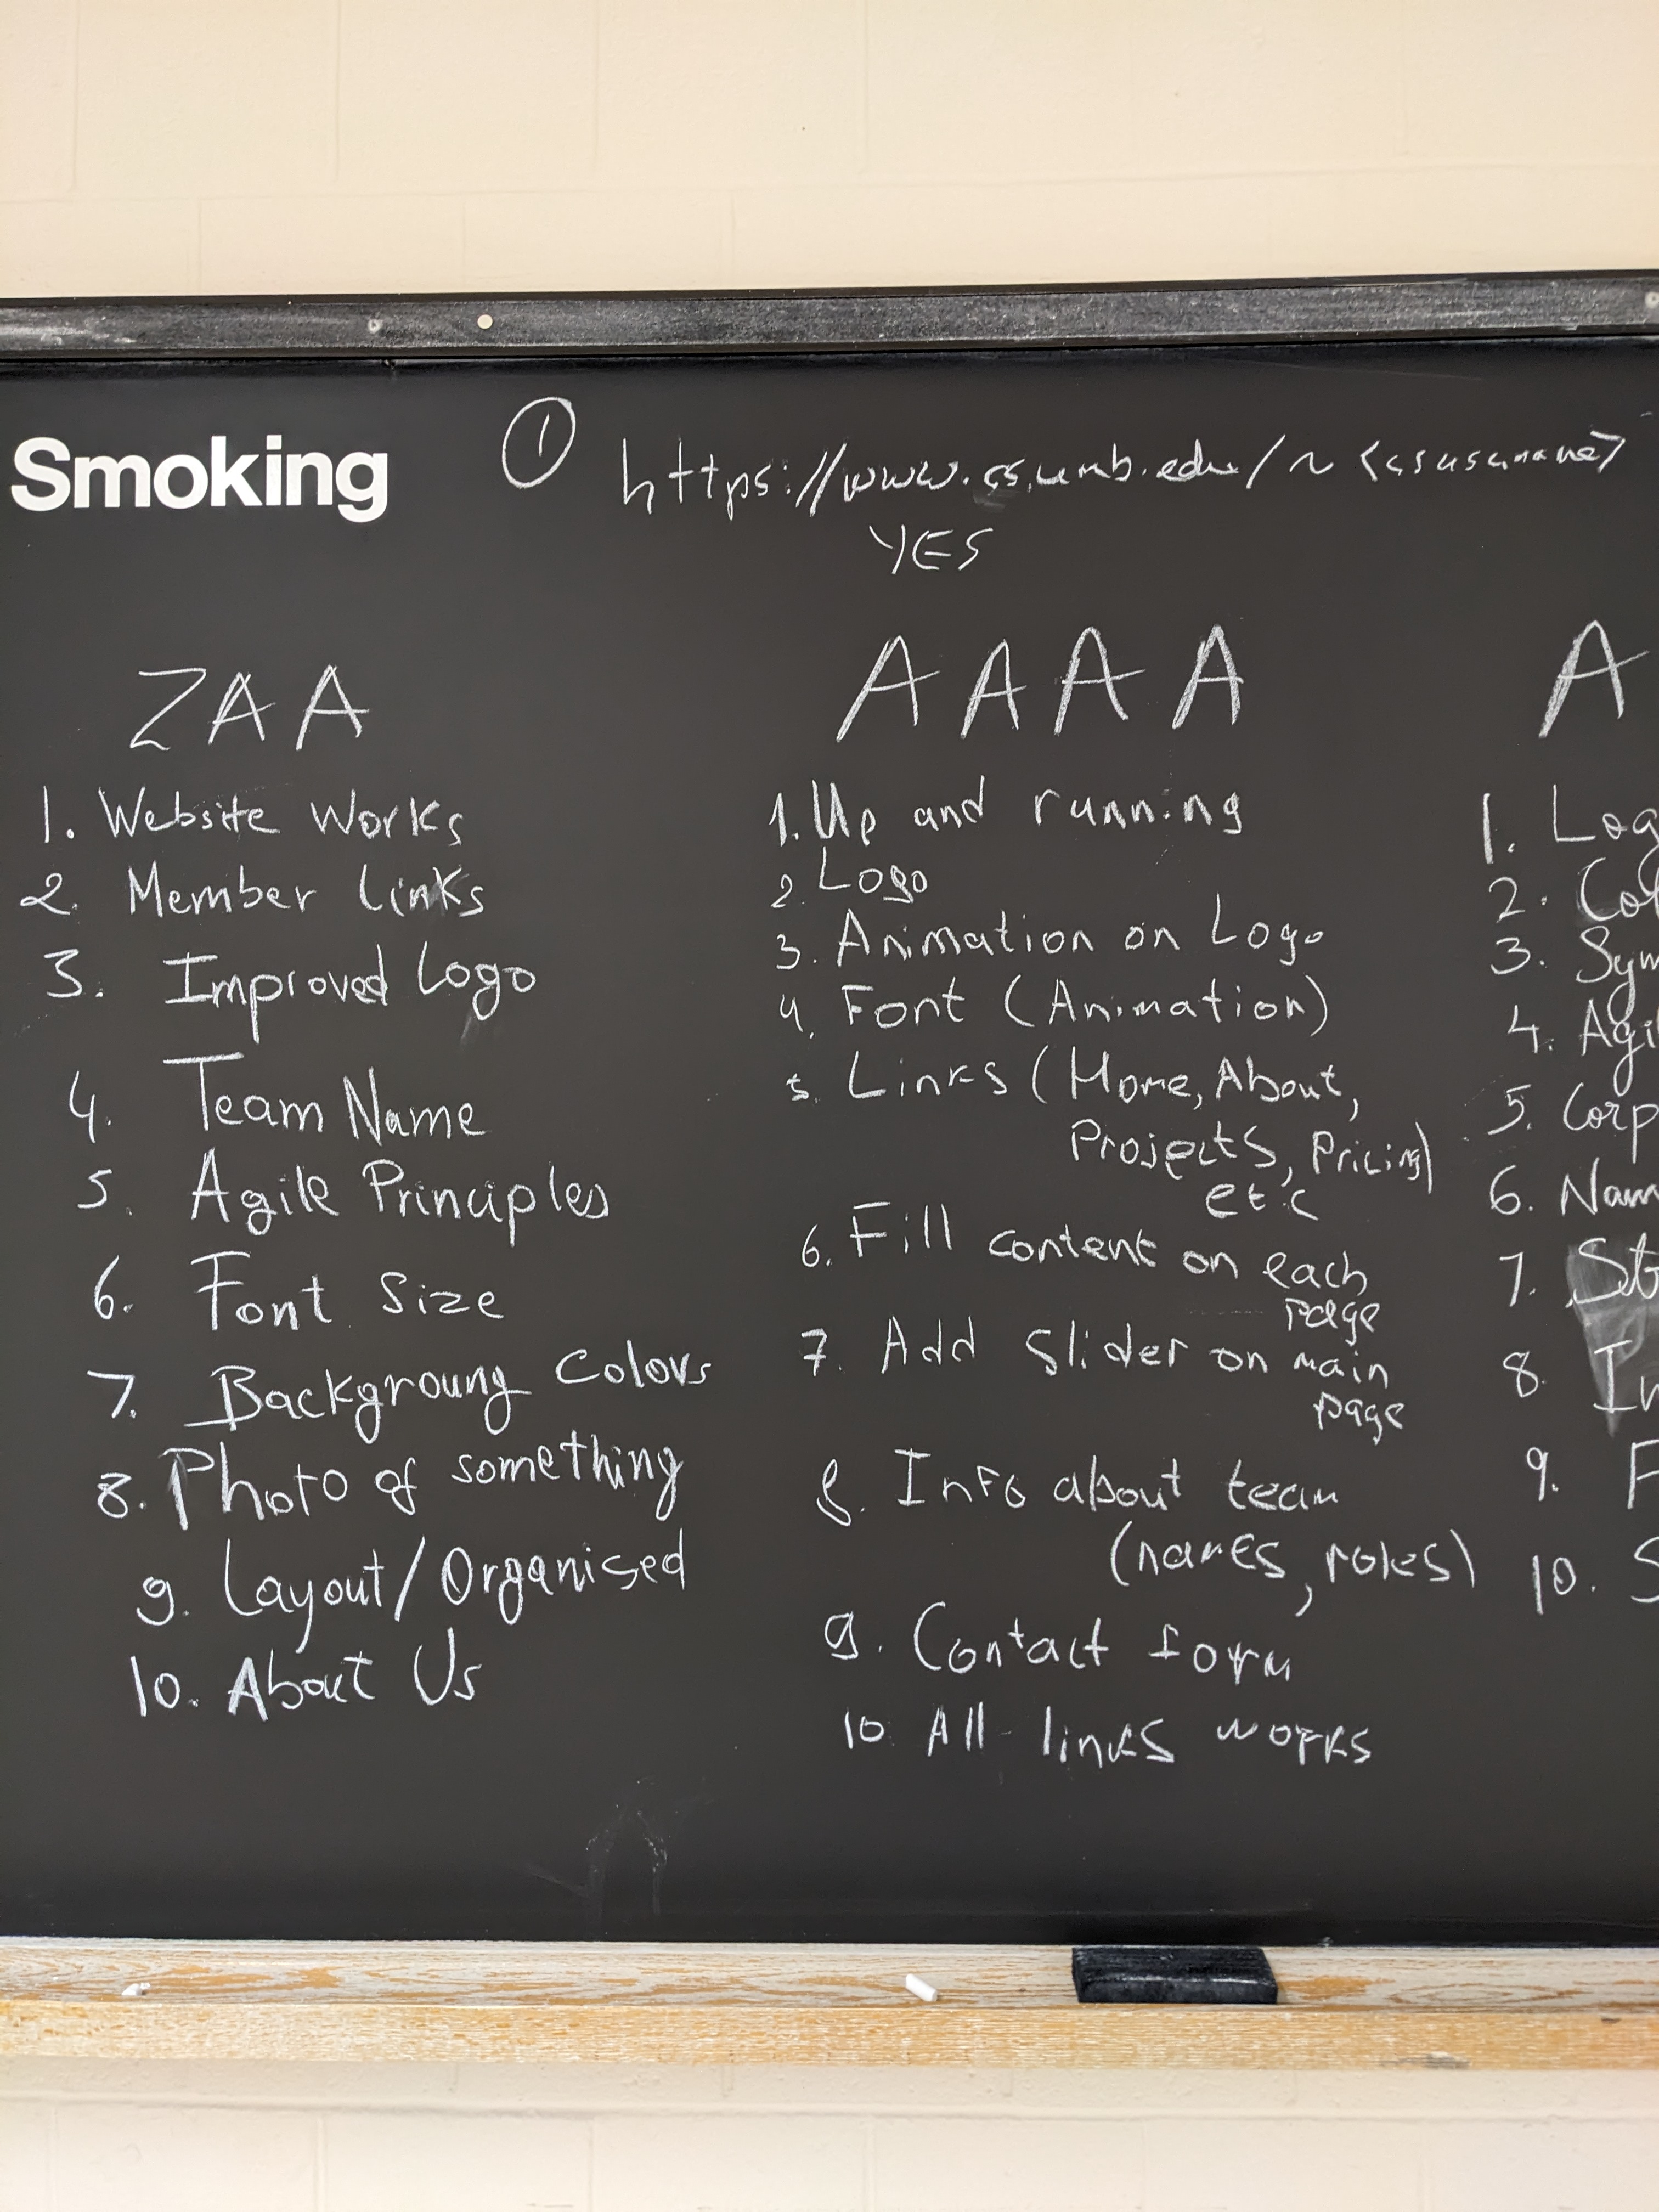 Smoking
① https://www.cs.umb.edu/~<csusername>
YES
ZAA
1. Website Works
2. Member Links
3. Improved Logo
4. Team Name
5. Agile Principles
6. Font Size
7. Backgroung Colors
8. Photo of something
9. Layout/Organised
10. About Us
AAAA
1. Up and running
2. Logo
3. Animation on Logo
4. Font (Animation)
5. Links (Home, About,
Projects, Pricing)
etc
6. Fill content on each
page
7. Add Slider on main
page
8. Info about team
(names, roles)
9. Contact form
10 All links works
A
1. Log
2. Col
3. Sym
4. Agi
5. Corp
6. Nam
7. St
8. In
9. F
10. S